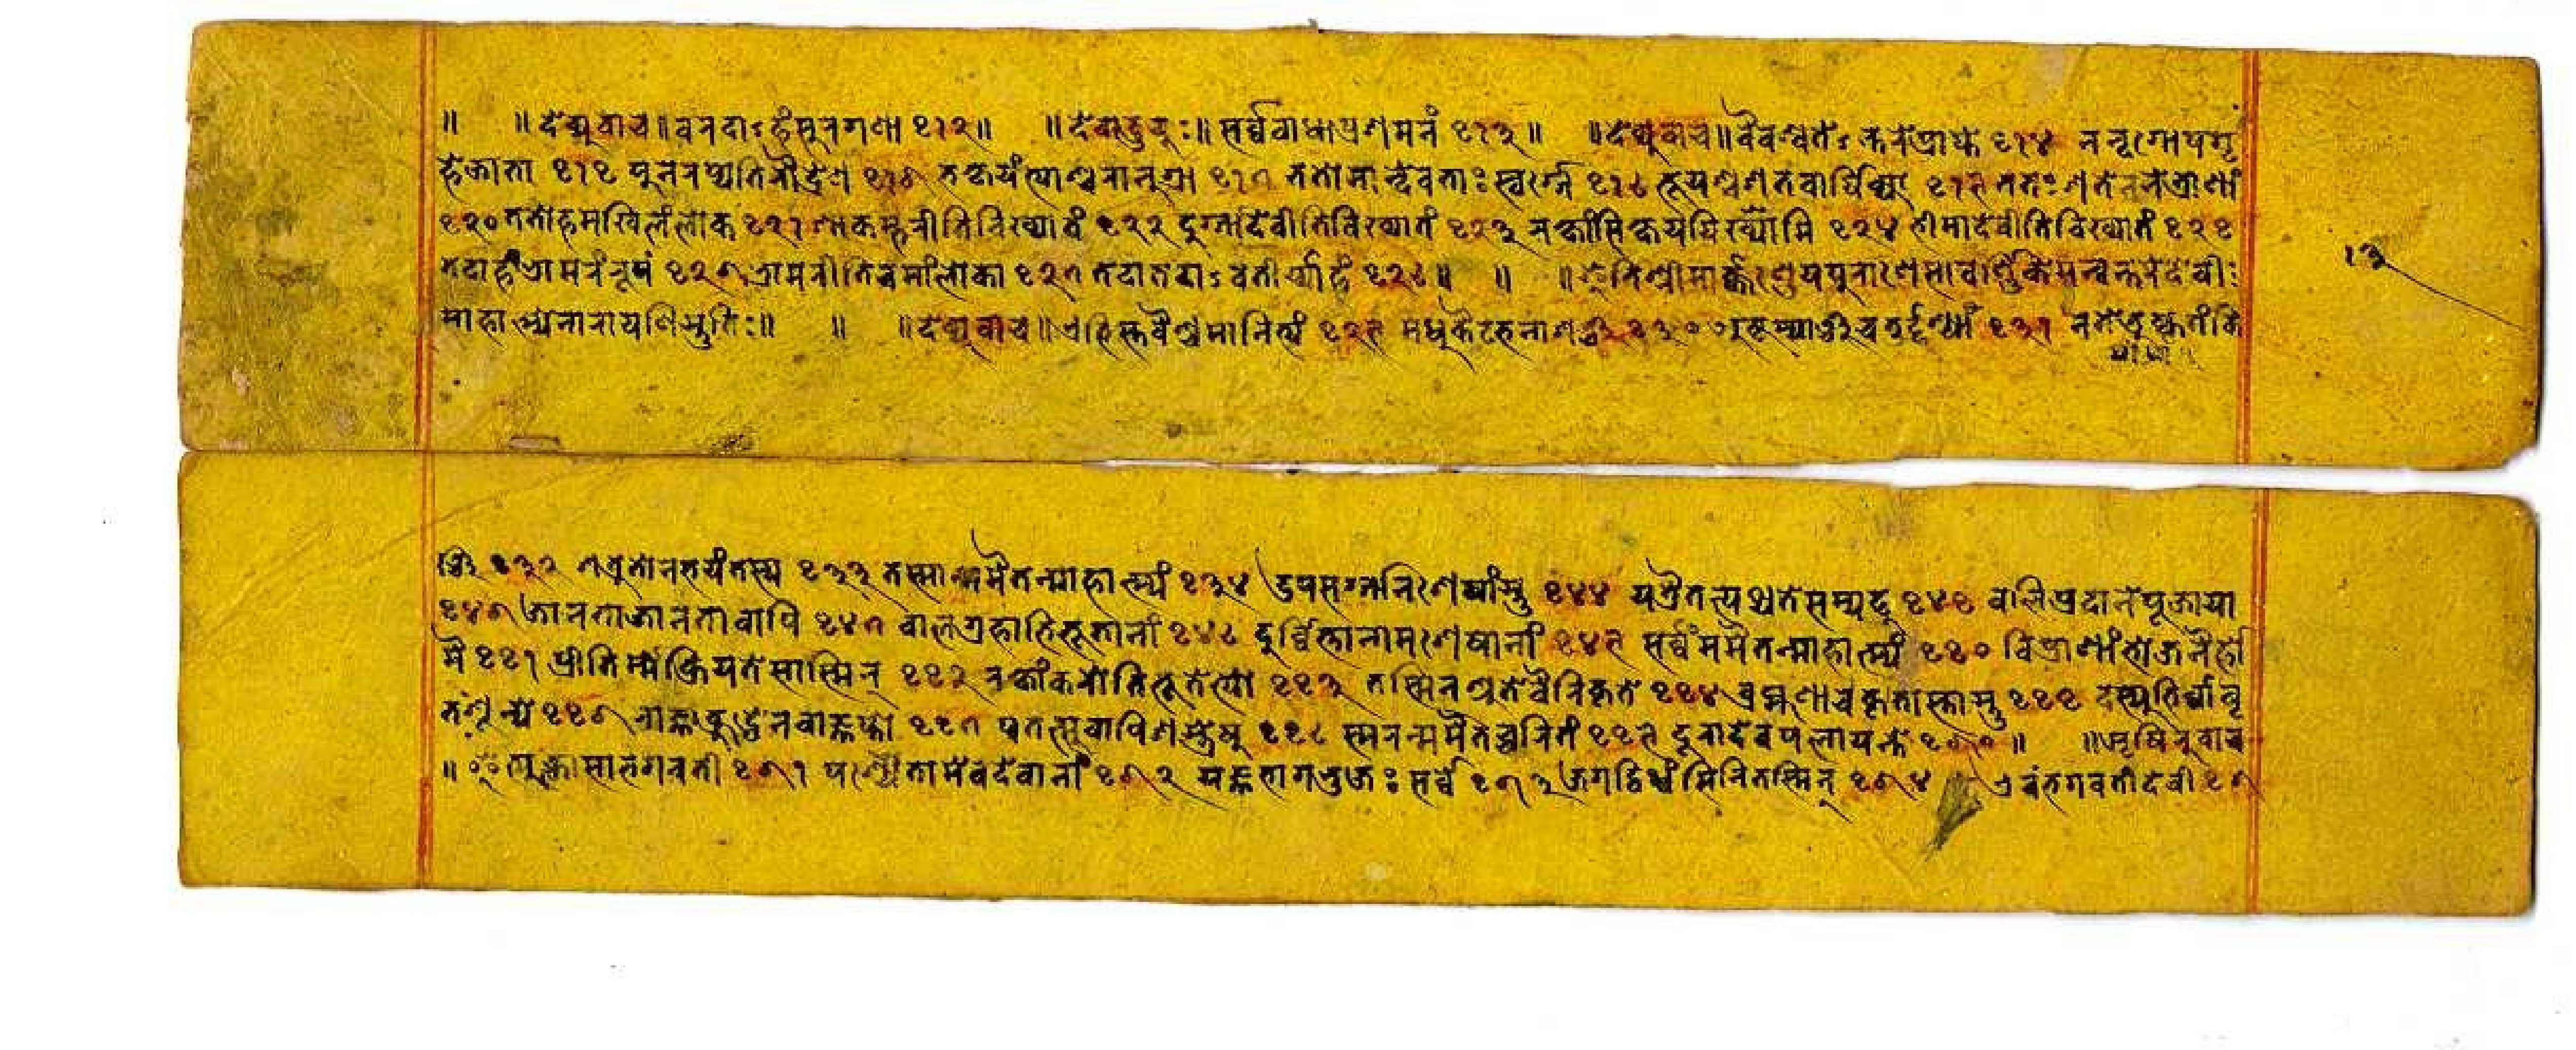 ॥ ॥ देव्युवाच॥ वरदाऽहंसुरगणा ५१२॥ ॥ देवाउचुः॥ सर्व्ववाधाप्रशमनं ५१३॥ ॥ देव्युवाच॥ वैवस्वतेऽन्तरेप्राप्ते ५१४ नन्दगोपगृ
हेजाता ५१५ पुनरप्यतिरौद्रेण ५१६ भक्षयंत्याश्चतानुग्रा ५१७ ततोमान्देवताः स्वर्ग्गे ५१८ भूयश्चशतवार्षिक्या ५१९ ततः शतेननेत्राणां
५२० ततोहमखिलंलोक ५२१ शाकम्भरीतिविख्यातं ५२२ दुर्ग्गादेवीतिविख्यातं ५२३ रक्षांसिक्षययिष्यामि ५२४ भीमादेवीतिविख्यातं ५२५
तदाहंभ्रामरंरूपं ५२६ भ्रामरीतिचमांलोका ५२७ तदातदाऽवतीर्य्याहं ५२८॥ ॥ ॥ इतिश्रीमार्क्कण्डेयपुराणेसावर्ण्णिकेमन्वन्तरेदेवीः
माहात्म्येनारायणिस्तुतिः॥ ॥ ॥ देव्युवाच॥ एभिस्तवैश्चमानित्यं ५२९ मधुकैटभनाशञ्च ५३० अष्टम्याञ्चचतुर्द्दश्यां ५३१ नतेषांदुष्कृतंकि
ञ्चि ५३२ शत्रुतोनभयंतस्य ५३३ तस्मान्ममैतन्माहात्म्यं ५३४ उपसर्ग्गानशेषांस्तु ५४४ यत्रैतत्पथ्यतेसम्यङ् ५४५ वलिप्रदानेपूजाया
५४६ जानताजानतावापि ५४७ वालग्रहाभिभूतानां ५४८ दुर्व्वृत्तानामशेषानां ५४९ सर्व्वंममैतन्माहात्म्यं ५५० विप्राणांभोजनैर्हो
मै ५५१ प्रीतिर्म्मेक्रियतेसास्मिन् ५५२ रक्षांकरोतिभूतेभ्यो ५५३ तस्मिनश्रुतेवैरिकृतं ५५४ व्रह्मणाचकृतास्तास्तु ५५५ दस्युभिर्व्वावृ
तःशून्ये ५५६ राज्ञाक्रुद्धेनचाज्ञप्तो ५५७ पतत्सुचापिशस्त्रेषु ५५८ स्मरन्ममैतच्चरितं ५५९ दूरादेवपलायन्ते ५६०॥ ॥ ऋषिरुवाच
॥ इत्युक्त्वासाभगवती ५६१ पश्यतामेवदेवानां ५६२ यज्ञभागभुजः सर्व्वे ५६३ जगद्विध्वंसिनितस्मिन् ५६४ एवंभगवतीदेवी ५६